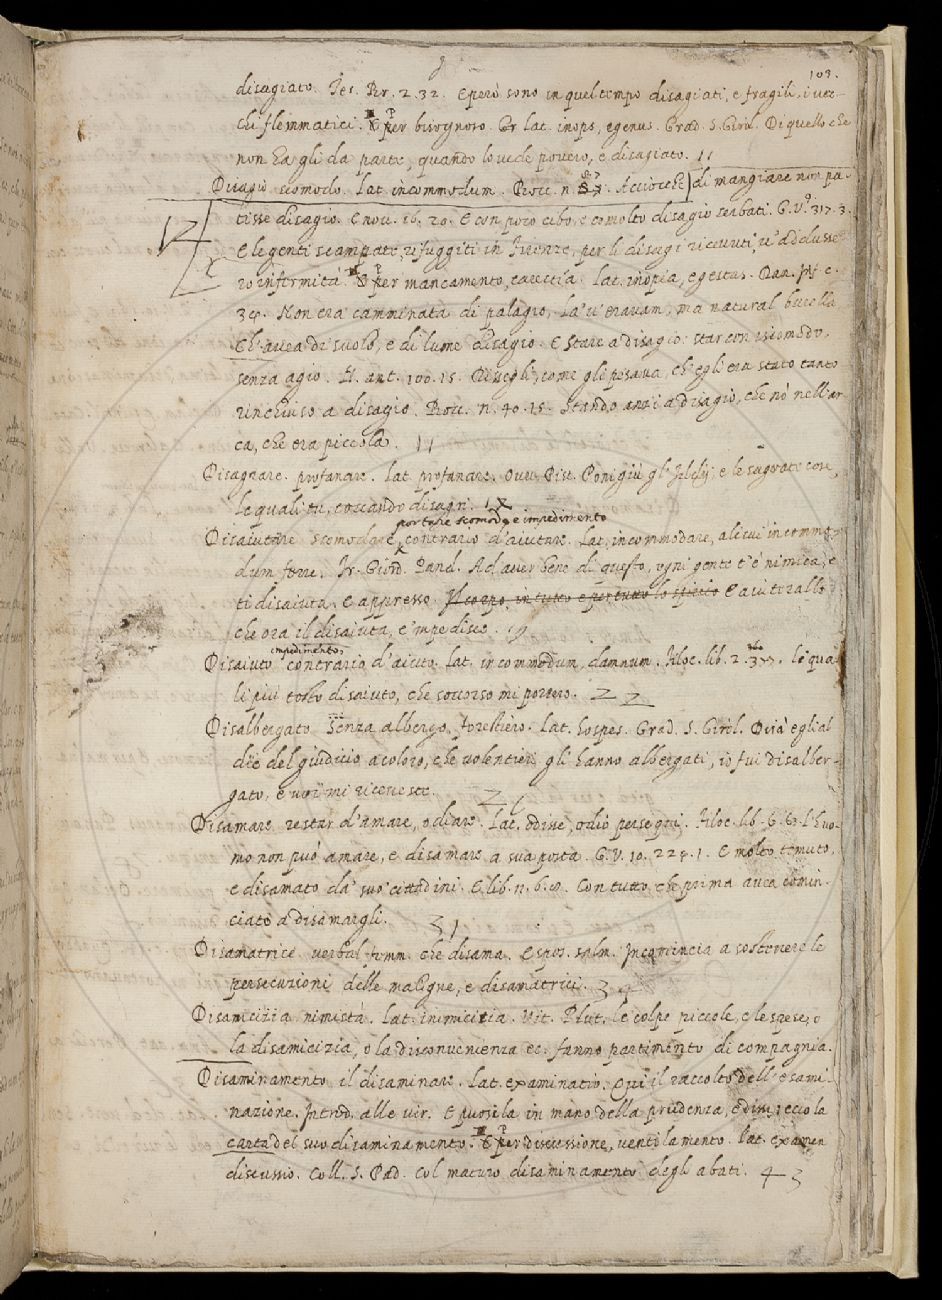 103.
disagiato. Tes. Br. 2. 32. E però sono in quel tempo disagiati, e fragili, i vec-
chi flemmatici. ¶ E per bisognoso. Gr lat. inops, egenus. Grad. S. Girol. Di quello che
non ha gli da parte, quando lo vede povero, e disagiato. 11
Disagio scomodo. Lat. incommodum. Bocc. n. Acciocchè di mangiare non pa-
tisse disagio. E nov. 16. 20. E con poco cibo, e co molto disagio serbati. G. V. 317. 3.
E le genti scampate, rifuggiti in Firenze, per li disagi ricevuti, v' addusse-
ro infermità. E per mancamento, carestia. Lat. inopia, egestas. Dan. Inf. c.
34. Non era camminata di palagio, La 'v' eravam, ma natural burella
Ch' avea di suolo, e di lume disagio. E Stare a disagio. star con iscomodo,
senza agio. N. ant. 100. 15. come gli pesava, ch' egli era stato tanto
rinchiuso a disagio. Bocc. n. 40. 15. Stando anzi a disagio, che nò nell' ar-
ca, che era piccola. 11
Disagrare. profanare. Lat. profanare. Ovv. Pist. Poni giù gl' Iddij, e le sagrate cose,
le quali tu, toccando disagri. 12
portare scomodo, e impedimento
Disaiutare scomodare, contrario d' aiutare. Lat. incommodare, alicui incommo-
dum ferre. Fr. Giord. Pred. Ad aver bene di questo, ogni gente t' è nimica, e
ti disaiuta. E appresso. Il corpo, in tutto e per tutto lo spirito E aiuterallo
che ora il disaiuta, e 'mpedisce. 19
impedimento,
Disaiuto contrario d' aiuto. Lat. incommodum, damnum. Filoc. lib. 2. le qua-
li più tosto disaiuto, che soccorso mi porsero. 22
Disalbergato Senza albergo, forestiero. Lat. hospes. Grad. S. Girol. Dirà egli al
die del giudicio a coloro, che volentieri gli hanno albergati, io fui disalber-
gato, e voi mi riceveste. 26
Disamare restar d' amare, odiare. Lat. odisse, odio persequi. Filoc. lib. 6. L' huo-
mo non può amare, e disamare a sua posta. G. V. 10. 224. 1. E molto temuto,
e disamato da' suo' cittadini. E lib. n. 6. Con tutto, che prima avea comin-
ciato a disamargli. 31
Disamatrice verbal. femm. che disama. Espos. salm. Incomincia a sostenere le
persecuzioni delle maligne, e disamatrici.
Disamicizia nimistà. Lat. inimicitia. Vit. Plut. le colpe piccole, e le spese, o
la disamicizia, o la disconvenienza ec. fanno partimento di compagnia.
Disaminamento il disaminare. Lat. examinatio. Qui il raccolto dell' esami-
nazione. Introd. alle vir. E puosila in mano della prudenza, e diss, ecco la
carta del suo disaminamento. ¶ E per discussione, ventilamento. Lat. examen
discussio. Coll. S. Pad. Col maturo disaminamento degli abati. 43